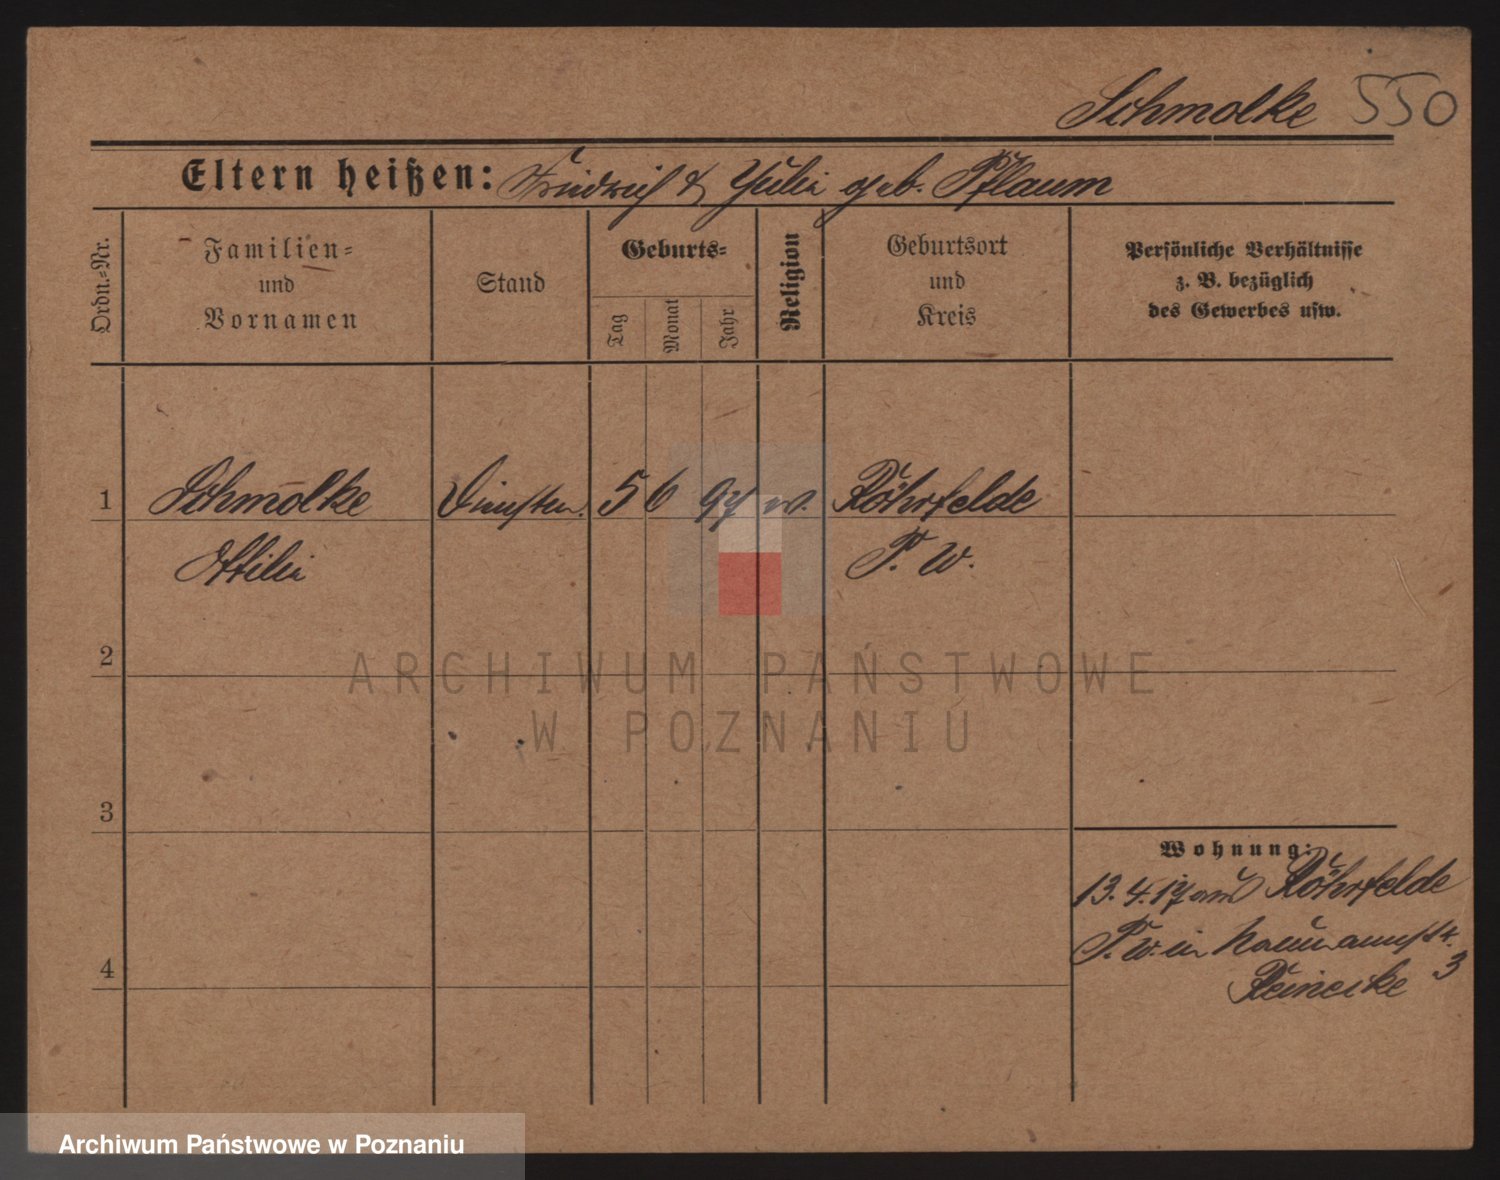 Schmolke 550
Eltern heißen: Friedrich & Julie geb. Pflaum
Ordn.-Nr.
Familien-
und
Vornamen
Stand
Geburts-
Tag
Monat
Jahr
Religion
Geburtsort
und
Kreis
Persönliche Verhältnisse
z. B. bezüglich
des Gewerbes usw.
1 Schmolke 5 6 97 Röhrfelde
Ottilie P. W.
2
ARCHIWUM PAŃSTWOWE
W POZNANIU
3
Wohnung:
13.4.17 aus Röhrfelde
P. W. in Naumannstr.
4
Reinecke 3
Archiwum Państwowe w Poznaniu